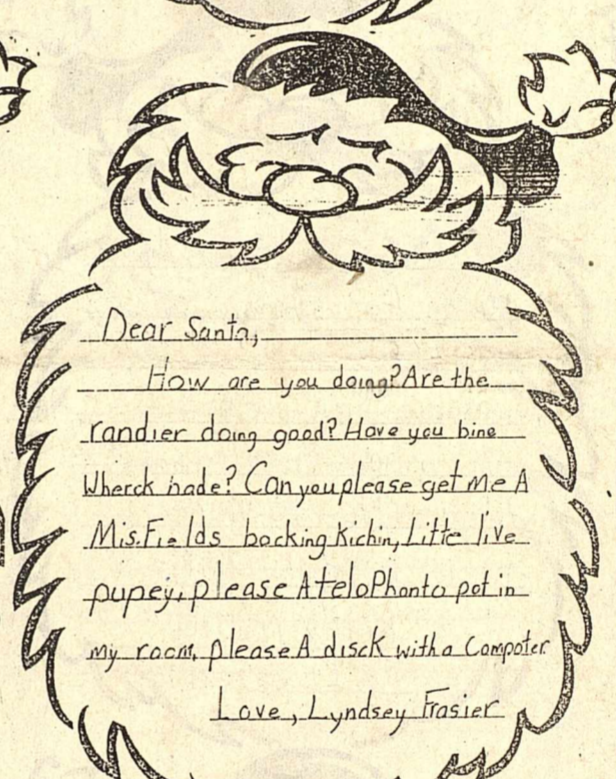 Dear Santa,
How are you doing? Are the
randier doing good? Have you bine
Wherck hade? Can you please get me A
Mis. Fields backing Kichin, Litte live
pupey, please A teloPhonto pot in
my room, please A disck with a Compoter
Love, Lyndsey Frasier